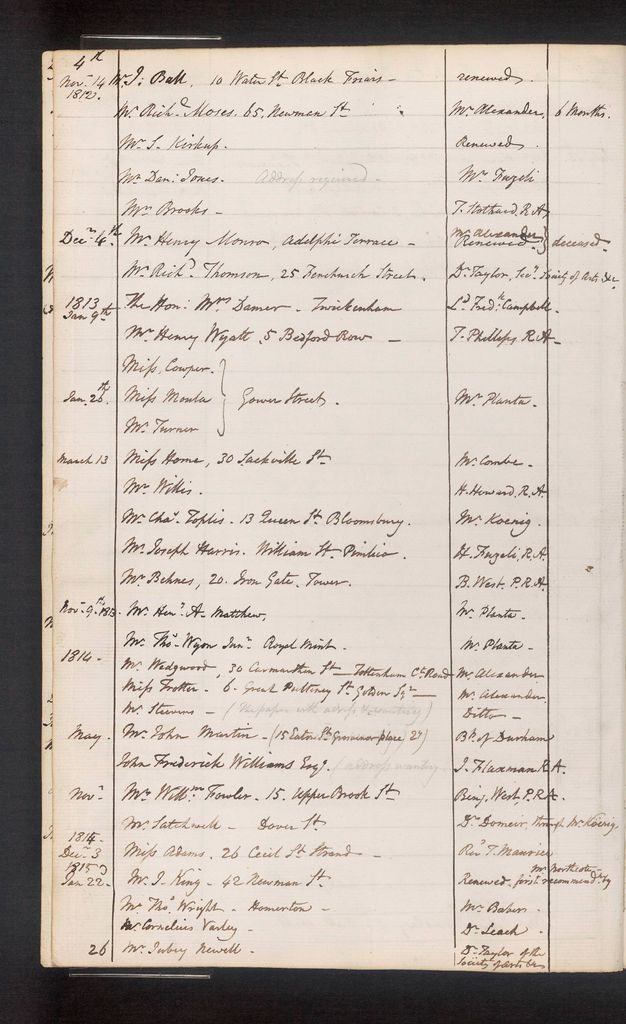 4th
Novr. 14 1812. Mr. J: Ball, 10 Water St. Black Friars - renewed.
Mr. Richd. Moses. 65, Newman St. Mr. Alexander, 6 Months.
Mr. S. Kirkup. Renewed.
Mr. Dan: Jones. Address required - Mr. Fuzeli
Mr. Brooks - T. Stothard, R.A.
Decr. 4th. Mr. Henry Monro, Adelphi Terrace - Mr. Alexander Renewed } deceased.
Mr. Richd. Thomson, 25 Fenchurch Street. Dr. Taylor, Secy. Society of Arts &c.
1813 Jan 9th The Hon: Mrs. Damer - Twickenham Ld. Fredk. Campbell.
Mr. Henry Wyatt, 5 Bedford Row - T. Phillips, R.A.
Miss Cowper.
Jan. 26th Miss Moula } Gower Street. Mr. Planta.
Mr. Turner
March 13 Miss Home, 30 Sackville St. Mr. Combe.
Mr. Willis. H. Howard, R.A.
Mr. Chas. Toplis. 13 Queen St. Bloomsbury. Mr. Koenig.
Mr. Joseph Harris. William St. Pimlico. H. Fuzeli, R.A.
Mr. Behnes, 20. Iron Gate, Tower. B. West, P.R.A.
Nov. 9th. 1813. Mr. Heny. A. Matthew, Mr. Planta -
Mr. Thos. Wyon Junr. Royal Mint. Mr. Planta -
1814 - Mr. Wedgwood, 30 Carmarthen St - Tottenham Ct. Road Mr. Alexander
Miss Trotter - 6. Great Pulteney St. Golden Sqr - Mr. Alexander
Mr. Stevens - Ditto -
May. Mr. John Martin - (15 Eaton St. Grosvenor place 27) Bp. of Durham
John Frederick Williams Esqr. (address wanting J. Flaxman R.A.
Novr. Mr. Willm. Fowler. 15. Upper Brook St. Benj. West, P.R.A.
Mr. Satchwell - Dover St. Dr. Domeir, through Mr. König.
1814 Decr. 3 Miss Adams. 26 Cecil St. Strand - Revd. T. Maurice
1815 Jan 22. Mr. J. King - 42 Newman St. Renewed, first recommendd. by Mr. Northcote
Mr. Thos. Wright - Homerton - Mr. Baber.
Mr. Cornelius Varley - Dr. Leach.
26 Mr. Jubey Newell - Dr. Taylor of the Society of Arts &c